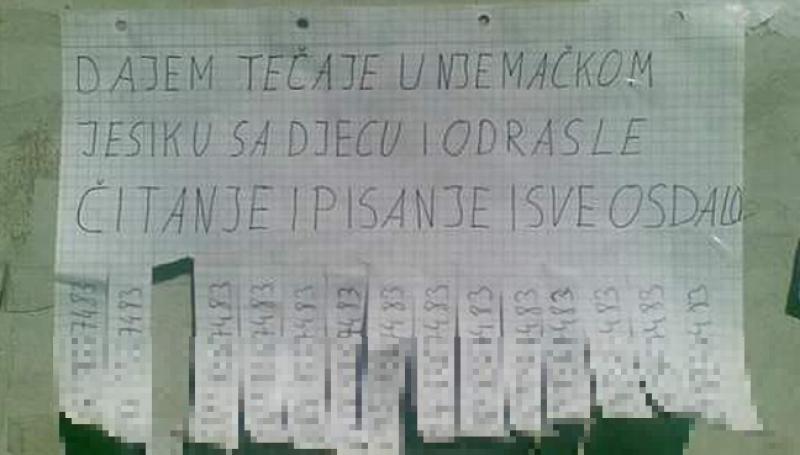 DAJEM TEČAJE U NJEMAČKOM
JESIKU SA DJECU I ODRASLE
ČITANJE I PISANJE I SVE OSDALO
7483
7483
7483
7483
7483
7483
7483
7483
7483
7483
7483
7483
7483
7483